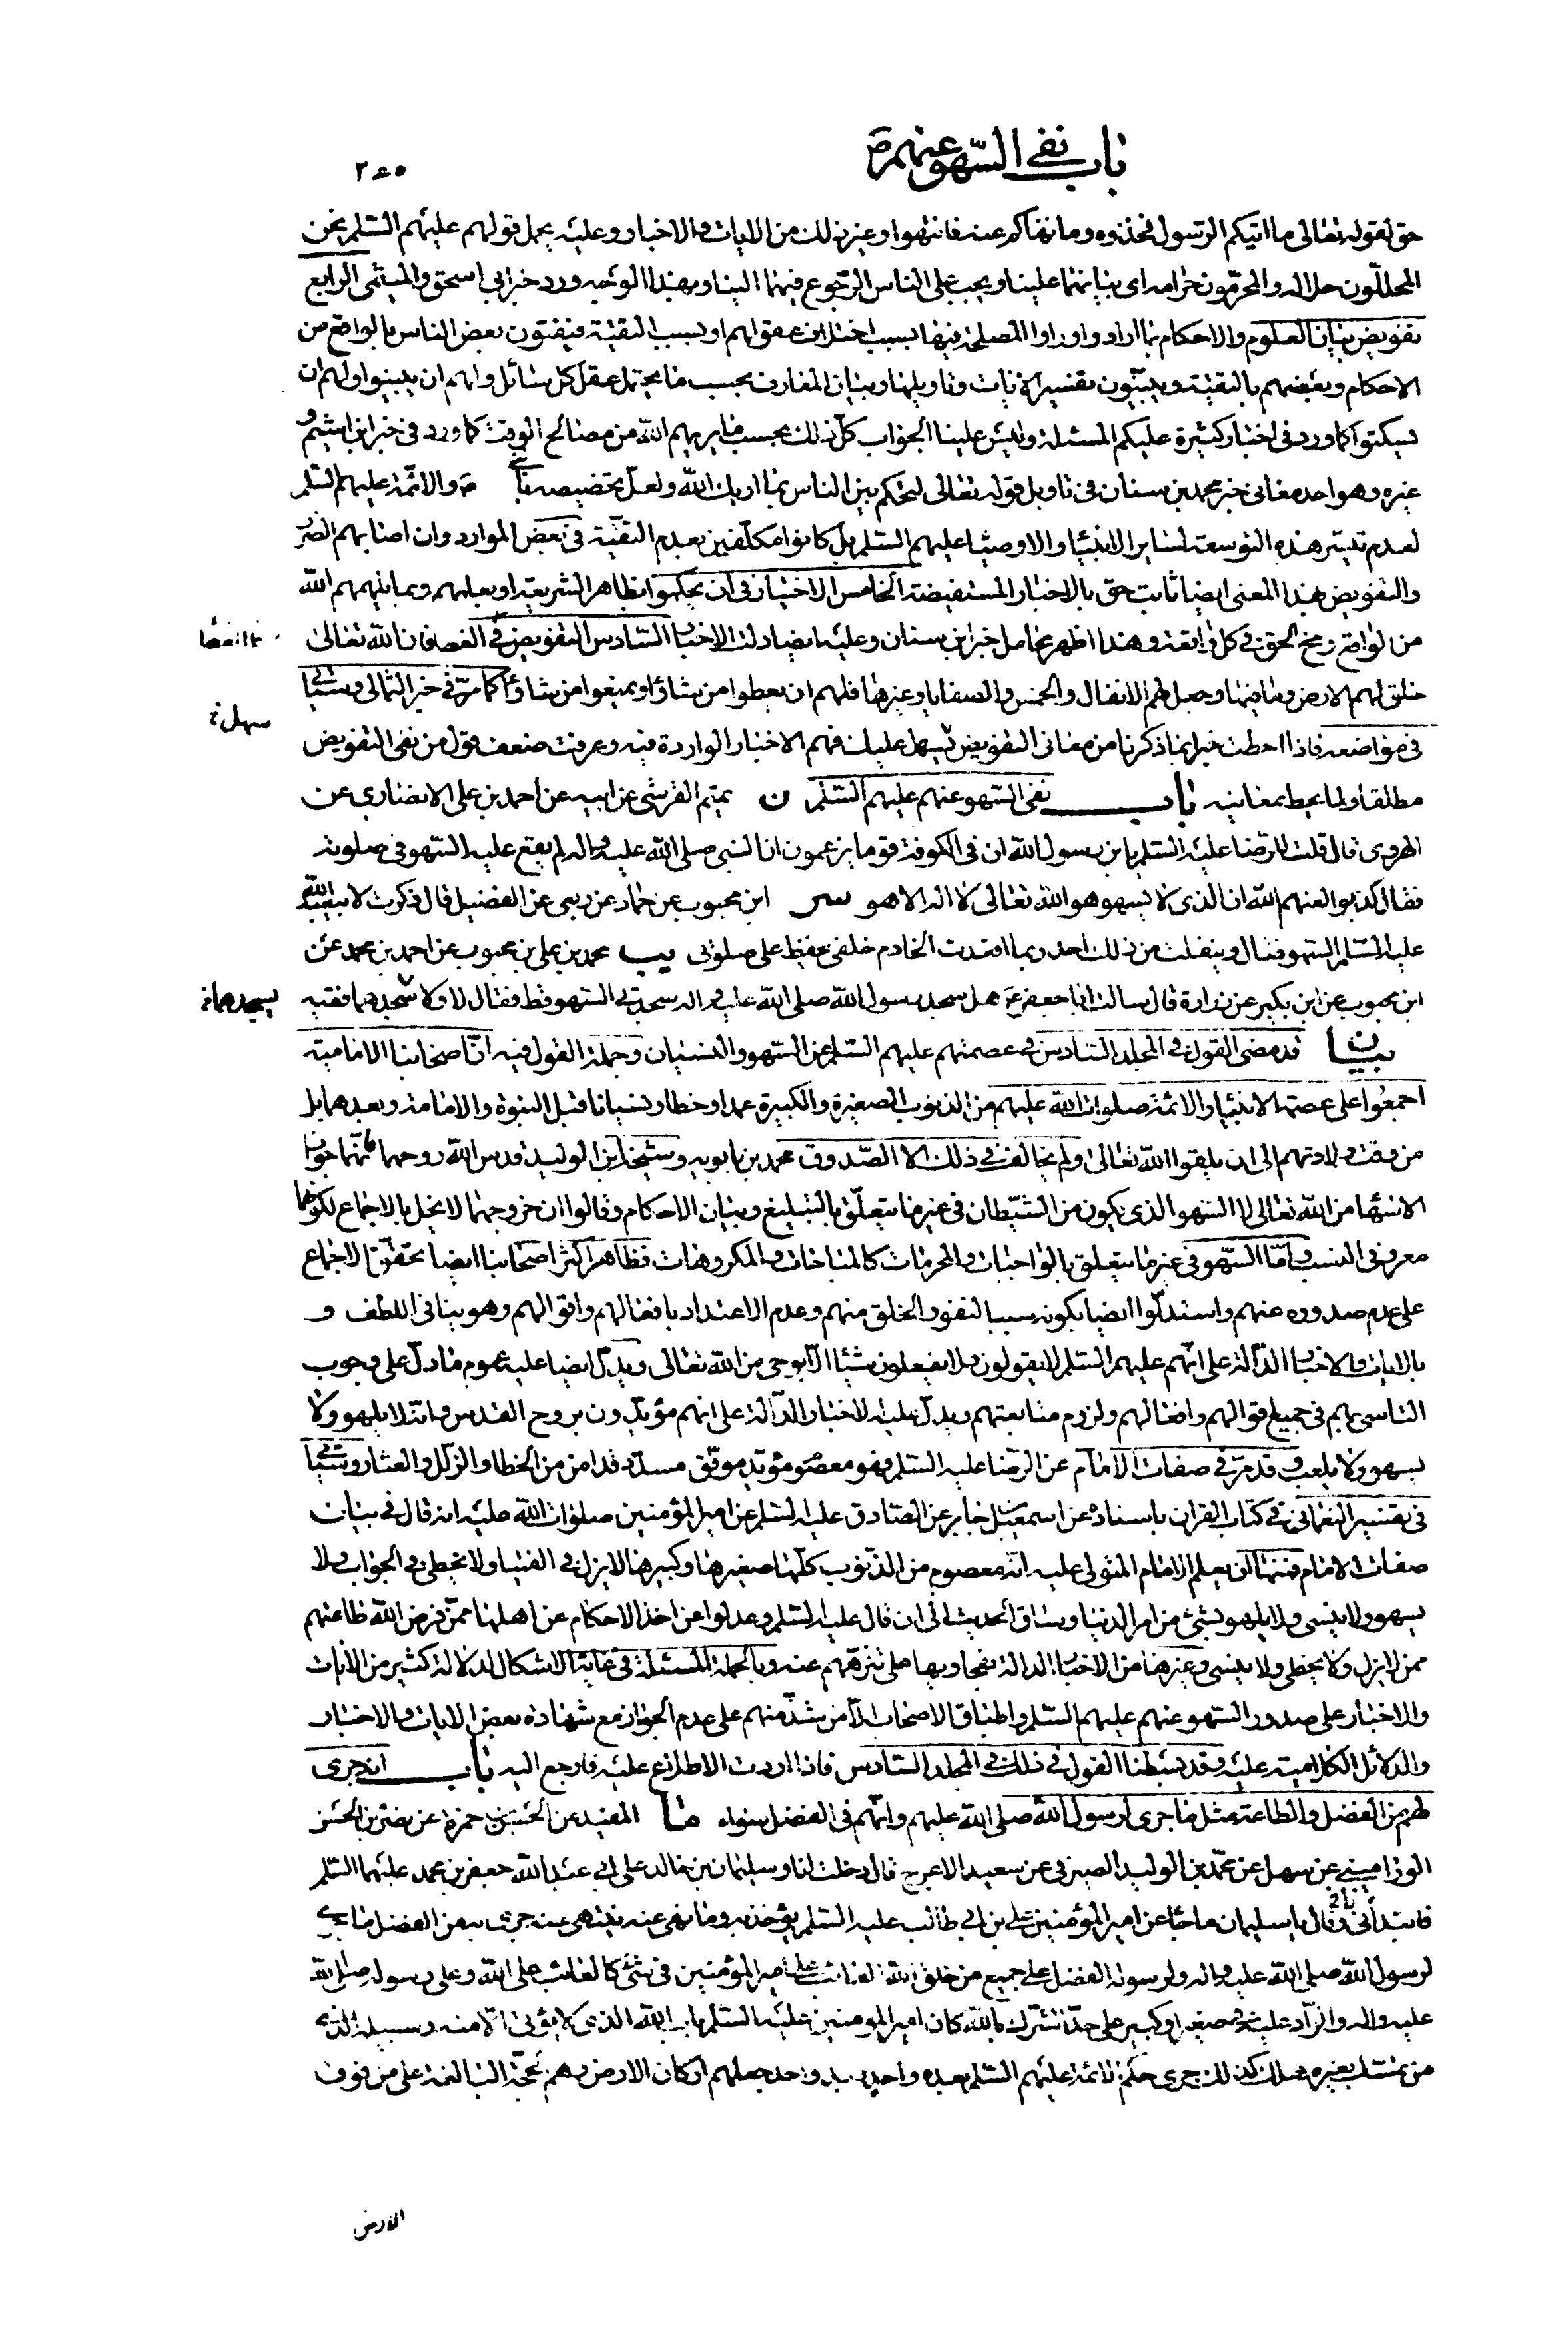 باب نفى السّهو عنهم ص
٢٤٥
حق لقوله تعالى ما اتيكم الرسول فخذوه وما نهاكم عنه فانتهوا وغير ذلك من الايات والاخبار وعليه يحمل قولهم عليهم السّلم نحن
المحلّلون حلاله والمحرّمون حرامه اى بيانهما علينا ويجب على الناس الرّجوع فيهما الينا وبهذا الوجه ورد خبر ابى اسحق والميثمى الرابع
تفويض بيان العلوم والاحكام بما ارادوا وراوا المصلحة فيها بسبب اختلاف عقولهم او بسبب التقيّة فيفتون بعض الناس بالواقع من
الاحكام وبعضهم بالتقيّة ويبيّنون تفسير الايات وتاويلها وبيان المعارف بحسب ما يحتمل عقل كل سائل ولهم ان يبينوا ولهم ان
يسكتوا كما ورد فى اخبار كثيرة عليكم المسئلة وليس علينا الجواب كلّ ذلك بحسب ما يريهم الله من مصالح الوقت كما ورد فى خبر ابن اشيم و
غيره وهو احد معانى خبر محمد بن سنان فى تاويل قوله تعالى لتحكم بين الناس بما اريك الله ولعلّ تخصيصه بالنبى ص والائمّة عليهم السّلم
لعدم تيسّر هذه التوسعة لساير الانبياء والاوصياء عليهم السّلم بل كانوا مكلّفين بعدم التقيّة فى بعض الموارد وان اصابهم الضرر
والتفويض بهذا المعنى ايضا ثابت حق بالاخبار المستفيضة الخامس الاختيار فى ان يحكموا بظاهر الشريعة او بعلمهم وبما يلهمهم الله
من الواقع ومخ الحق فى كل واقعة وهذا اظهر محامل خبر ابن سنان وعليه ايضا دلت الاخبار السّادس التفويض فى العطاء فان الله تعالى
خلق لهم الارض وما فيها وجعل لهم الانفال والخمس والصفايا وغيرها فلهم ان يعطوا من شاؤا ويمنعوا من شاؤا كما مرّ فى خبر الثمالى وسياتى
سهل خ
فى مواضعه فاذا احطت خبرا بما ذكرنا من معانى التفويض يسهل عليك فهم الاخبار الواردة فيه وعرفت ضعف قول من نفى التفويض
مطلقا ولما يحيط بمعانيه باب نفى السّهو عنهم عليهم السّلم ن تميم القرشى عن ابيه عن احمد بن على الانصارى عن
الهروى قال قلت للرّضا عليه السّلم يابن رسول الله ان فى الكوفة قوما يزعمون ان النبى صلى الله عليه واله لم يقع عليه السّهو فى صلوته
فقال كذبوا لعنهم الله ان الذى لا يسهو هو الله تعالى لا اله الا هو سر ابن محبوب عن حماد عن ربعى عن الفضيل قال ذكرت لابى عبد الله
عليه السّلم السّهو فقال وينفلت من ذلك احد ربما اقعدت الخادم خلفى يحفظ على صلوتى يب محمد بن على بن محبوب عن احمد بن محمد عن
ابن محبوب عن ابن بكير عن زرارة قال سالت ابا جعفر ع هل سجد رسول الله صلى الله عليه واله سجدتى السّهو قط فقال لا ولا سجدهما فقيه
يسجدهما خ
بيان قد مضى القول فى المجلد السّادس فى عصمتهم عليهم السّلم عن السّهو والنسيان وجملة القول فيه انّ اصحابنا الاماميّة
اجمعوا على عصمة الانبياء والائمّة صلوات الله عليهم من الذنوب الصغيرة والكبيرة عمدا وخطا ونسيانا قبل النبوة والامامة وبعدهما بل
من وقت ولادتهم الى ان يلقوا الله تعالى ولم يخالف فى ذلك الا الصّدوق محمد بن بابويه وشيخه ابن الوليد قدس الله روحهما فانهما جوزا
الاسهاء من الله تعالى لا السّهو الذى يكون من الشّيطان فى غير ما يتعلّق بالتبليغ وبيان الاحكام وقالوا ان خروجهما لا يخل بالاجماع لكونهما
معروفى النسب وامّا السّهو فى غير ما يتعلق بالواجبات والمحرمات كالمباحات والمكروهات فظاهر اكثر اصحابنا ايضا تحقق الاجماع
على عدم صدوره عنهم واستدلّوا ايضا بكونه سببا لنفور الخلق منهم وعدم الاعتداد بافعالهم واقوالهم وهو ينافى اللطف و
بالايات والاخبار الدّالة على انّهم عليهم السّلم لا يقولون ولا يفعلون شيئا الّا بوحى من الله تعالى ويدلّ ايضا عليه عموم ما دلّ على وجوب
التاسى بهم فى جميع اقوالهم وافعالهم ولزوم متابعتهم ويدلّ عليه الاخبار الدّالة على انهم مؤيّدون بروح القدس وانه لا يلهو ولا
يسهو ولا يلعب وقد مرّ فى صفات الامام عن الرّضا عليه السّلم فهو معصوم مؤيّد موفّق مسدّد قد امن من الخطا والزّلل والعثار وسياتى
فى تفسير النعمانى فى كتاب القران باسناده عن اسمعيل بن جابر عن الصّادق عليه السّلم عن امير المؤمنين صلوات الله عليه انه قال فى بيان
صفات الامام فمنها ان يعلم الامام المتولى عليه انّه معصوم من الذّنوب كلّها صغيرها وكبيرها لا يزلّ فى الفتيا ولا يخطى فى الجواب ولا
يسهو ولا ينسى ولا يلهو بشئ من امر الدنيا وساق الحديث الى ان قال عليه السّلم وعدلوا عن اخذ الاحكام عن اهلها ممن فرض الله طاعتهم
ممن لا يزل ولا يخطى ولا ينسى وغيرها من الاخبار الدالة بفحاويها على تنزّههم عنه وبالجملة المسئلة فى غاية الاشكال لدلالة كثير من الايات
والاخبار على صدور السّهو عنهم عليهم السّلم واطباق الاصحاب الّا من شذّ منهم على عدم الجواز مع شهادة بعض الايات والاخبار
والدلائل الكلامية عليه وقد بسطنا القول فى ذلك فى المجلد السّادس فاذا اردت الاطلاع عليه فارجع اليه باب انه جرى
لهم من الفضل والطاعة مثل ما جرى لرسول الله صلى الله عليهم وانّهم فى الفضل سواء ما المفيد عن الحسين بن حمزة عن نصر بن الحسن
الورامينى عن سهل عن محمّد بن الوليد الصيرفى عن سعيد الاعرج قال دخلت انا وسليمان بن خالد على ابى عبد الله جعفر بن محمد عليهما السّلم
فابتدانى وقال يا سليمان ما جاء عن امير المؤمنين على بن ابى طالب عليه السّلم يؤخذ به وما نهى عنه ينتهى عنه جرى له من الفضل ما جرى
لرسول الله صلى الله عليه واله ولرسوله الفضل على جميع من خلق الله العائب على امير المؤمنين فى شئ كالعائب على الله وعلى رسوله صلى الله
عليه واله والرّاد عليه فى صغير او كبير على حدّ الشرك بالله كان امير المومنين عليه السّلم باب الله الذى لا يؤتى الّا منه وسبيله الذى
من تمسك بغيره هلك كذلك جرى حكم الائمة عليهم السّلم بعده واحد بعد واحد جعلهم اركان الارض وهم الحجّة البالغة على من فوق
الارض